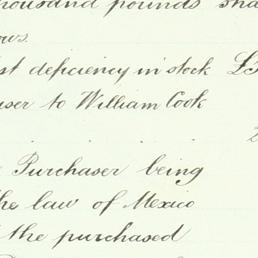 housand pounds sha
ows.
st deficiency in stock £5
ser to William Cook
Purchaser being
the law of Mexico
the purchased